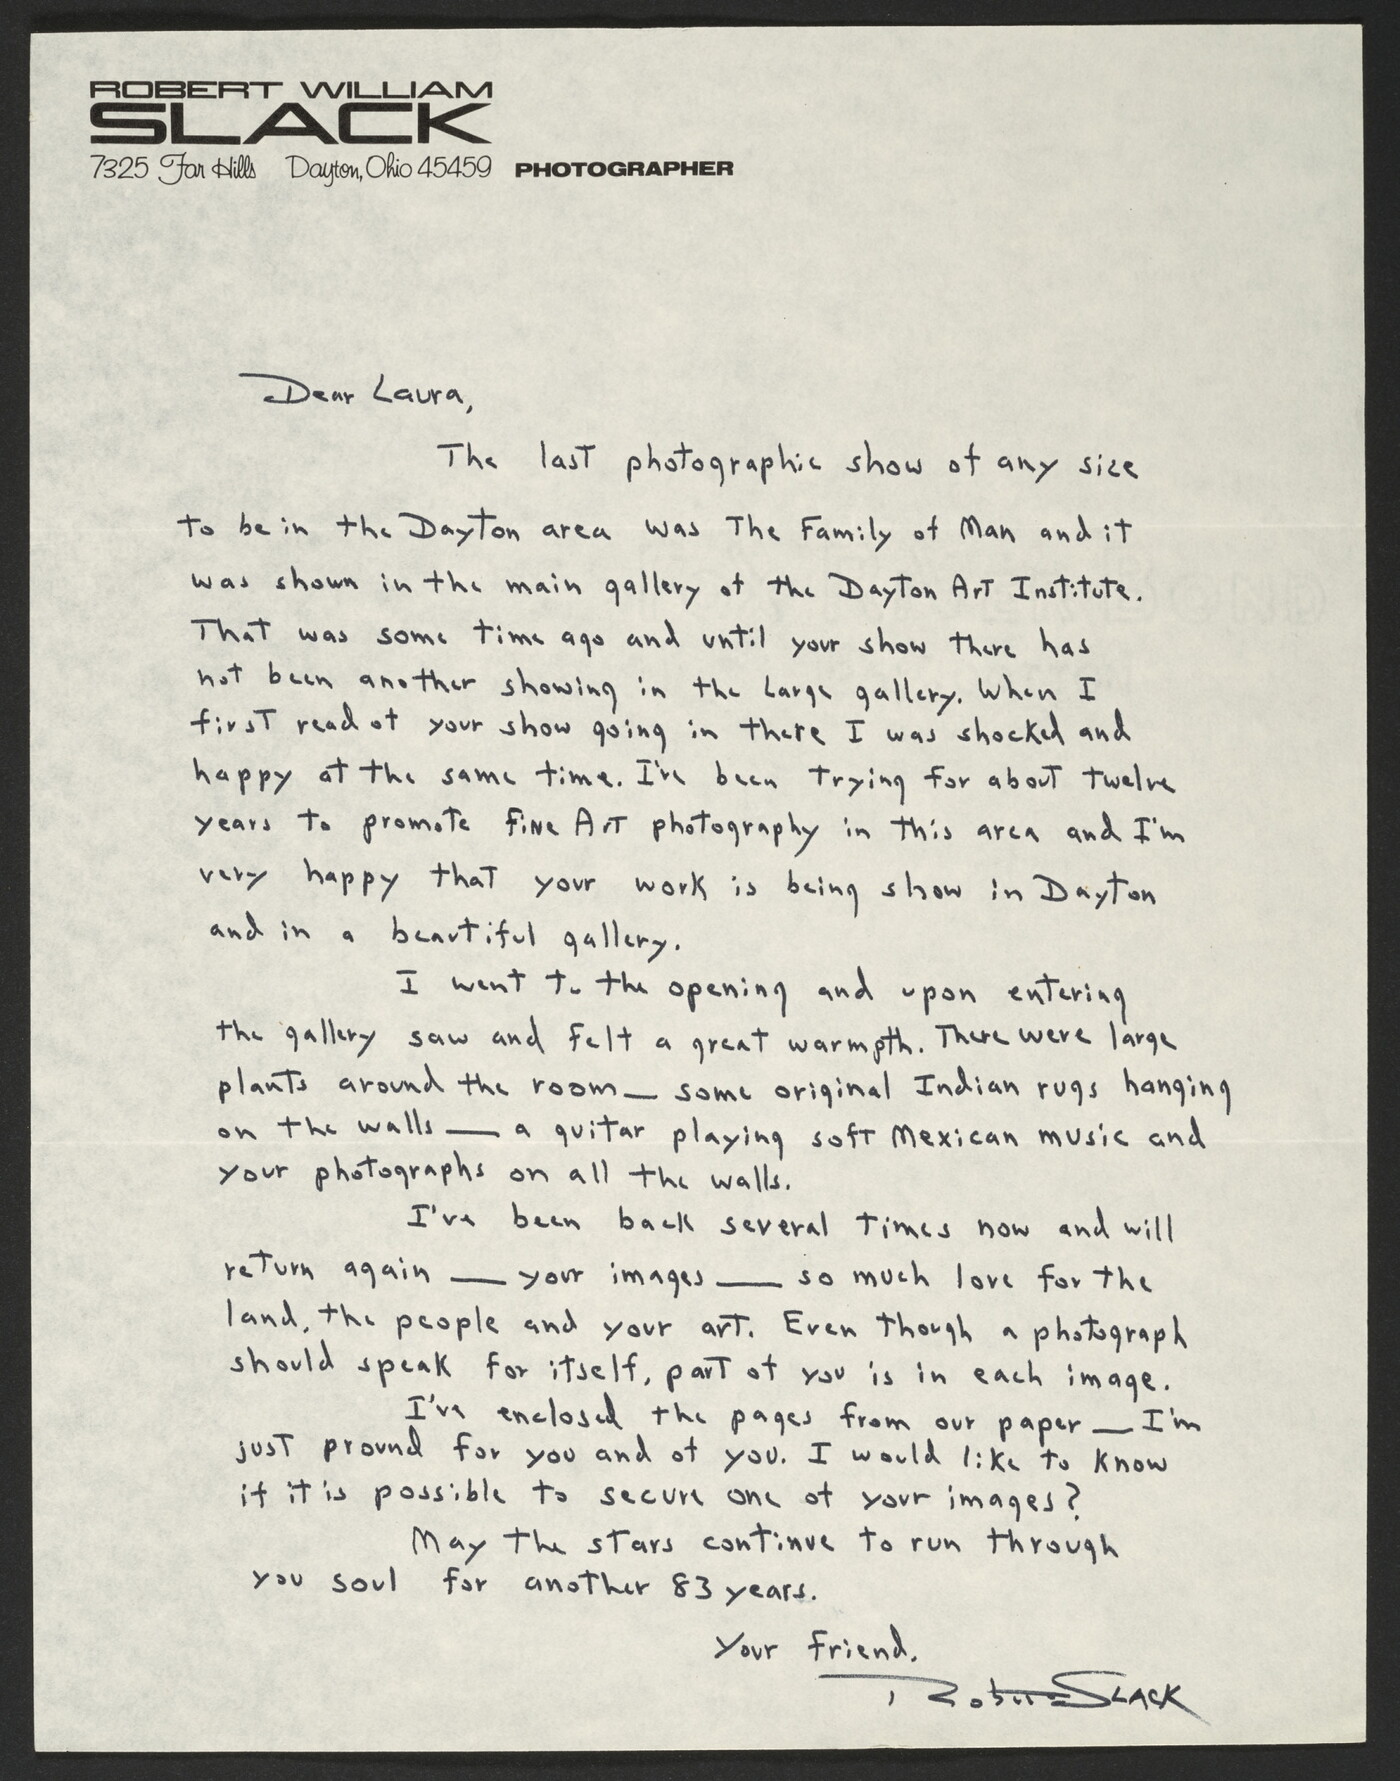 ROBERT WILLIAM
SLACK
7325 Far Hills Dayton, Ohio 45459 PHOTOGRAPHER
Dear Laura,
The last photographic show of any size
to be in the Dayton area was The Family of Man and it
was shown in the main gallery of the Dayton Art Institute.
That was some time ago and until your show there has
not been another showing in the Large gallery. When I
first read of your show going in there I was shocked and
happy at the same time. I've been trying for about twelve
years to promote Fine Art photography in this area and I'm
very happy that your work is being show in Dayton
and in a beautiful gallery.
I went to the opening and upon entering
the gallery saw and felt a great warmpth. There were large
plants around the room — some original Indian rugs hanging
on the walls — a guitar playing soft Mexican music and
your photographs on all the walls.
I've been back several times now and will
return again — your images — so much love for the
land, the people and your art. Even though a photograph
should speak for itself, part of you is in each image.
I've enclosed the pages from our paper — I'm
just pround for you and of you. I would like to know
if it is possible to secure one of your images?
May the stars continue to run through
you soul for another 83 years.
Your friend.
Robert Slack